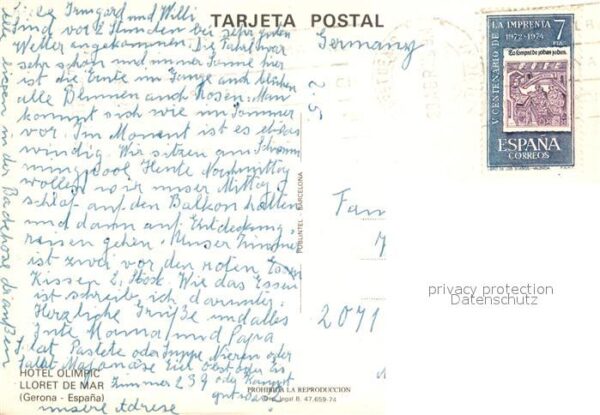 TARJETA POSTAL
Irmgard und Willi
Sind vor 2 Stunden bei
Wetter angekommen. Die Fahrt war
sehr schön und immer Sonne hier
ist die Ernte im Gange auch blühen
alle Blumen auch Rosen. Man
kommt sich wie im Sommer
vor. Im Moment ist es etwas
windig. Wir sitzen am Schwim
mingpool. Heute Nachmittag
wollen wir unser Mittag
schlaf auf den Balkon halten
und dann auf Entdeckung
reisen gehen. Unser Zimmer
ist zwei vor den roten
Kissen 2. Stock. Wie das Essen
ist schreibe ich darunter.
Herzliche Grüße und alles
Gute Mama und Papa
Salat Pastete oder Suppe Nieren oder
Salat Majonäse Eier oder Eis
Zimmer 239 oder
unsere Adresse
alle liegen in der Badehose draußen
HOTEL OLIMPIC
LLORET DE MAR
(Gerona - España)
PUBLINTEL - BARCELONA
PROHIBIDA LA REPRODUCCION
Dep. legal B. 47.659-74
Germany
Fam
2071
V CENTENARIO DE LA IMPRENTA
1972-1974
7
PTAS
ESPAÑA
CORREOS
privacy protection
Datenschutz